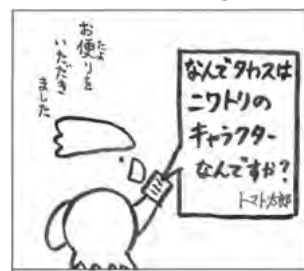 お便りを
たよ
いただき
ました
なんでタカスは
ニワトリの
キャラクター
なんですか?
トマト太郎